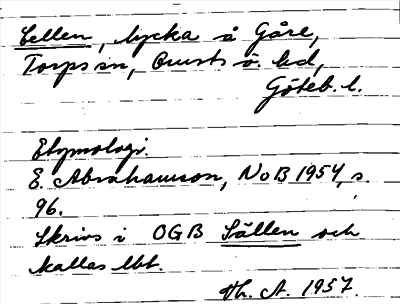 Cellen, lycka å Gåre,
Torps sn, Orusts ö. hd,
Göteb. l.
Etymologi.
E. Abrahamson, NoB 1954, s.
96.
Skrivs i OGB Sällen och
kallas lbt.
Th. A. 1957.